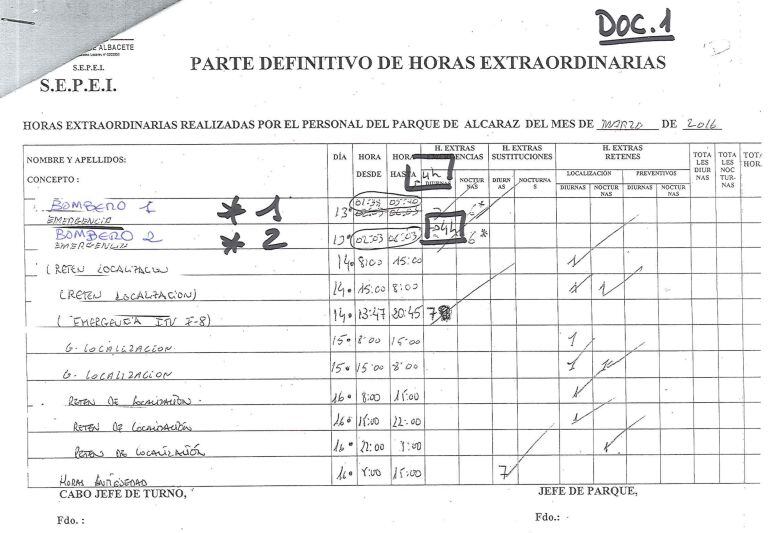 DOC.1
DE ALBACETE
S.E.P.E.I.
S.E.P.E.I.
PARTE DEFINITIVO DE HORAS EXTRAORDINARIAS
HORAS EXTRAORDINARIAS REALIZADAS POR EL PERSONAL DEL PARQUE DE ALCARAZ DEL MES DE MARZO DE 2016
NOMBRE Y APELLIDOS:
CONCEPTO :
DÍA
HORA DESDE
HORA HASTA
H. EXTRAS
DIURNAS
NOCTURNAS
H. EXTRAS SUSTITUCIONES
DIURNAS
NOCTURNAS
H. EXTRAS RETENES
LOCALIZACIÓN
DIURNAS
NOCTURNAS
PREVENTIVOS
DIURNAS
NOCTURNAS
TOTALES DIURNAS
TOTALES NOCTURNAS
TOTA HORA
4h
BOMBERO 1 * 1
EMERGENCIA 13° 6*
BOMBERO 2 * 2
EMERGENCIA 13° 02:03 06:03 04h 6*
(RETEN LOCALIZACION 14° 8:00 15:00 1
(RETEN LOCALIZACION) 14° 15:00 8:00 1 1
(EMERGENCIA ITV F-8) 14° 13:47 20:45 7
G. LOCALIZACION 15° 8:00 15:00 1
G. LOCALIZACION 15° 15:00 8:00 1 1
RETEN DE LOCALIZACIÓN 16° 8:00 15:00 1
RETEN DE LOCALIZACIÓN 16° 15:00 22:00 1
RETEN DE LOCALIZACIÓN 16° 22:00 1
HORAS ANTIGÜEDAD 16° 15:00 7
CABO JEFE DE TURNO,
JEFE DE PARQUE,
Fdo. :
Fdo.: